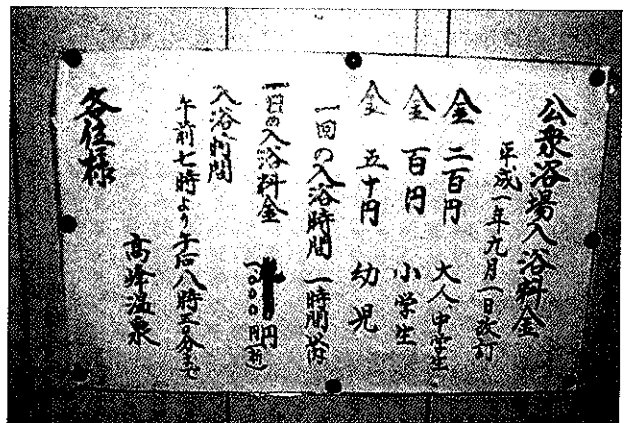 公衆浴場入浴料金
平成一年九月一日改訂
金 二百円 大人中学生
金 百円 小学生
金 五十円 幼児
一回の入浴時間 一時間以内
一日の入浴料金 円
一〇〇〇円
入浴時間
午前七時より午后八時
高峰温泉
各位様